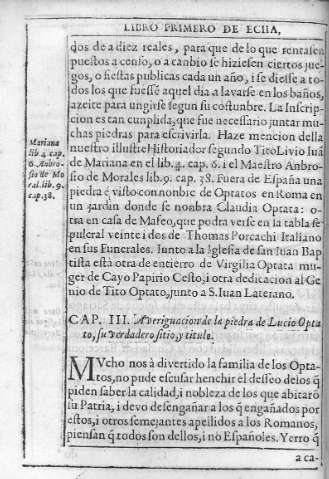 LIBRO PRIMERO DE ECIIA,
dos de a diez reales, para que de lo que rentasen
puestos a censo, o a canbio se hiziesen ciertos jue-
gos, o fiestas publicas cada un año, i se diesse a to-
dos los que fuesse aquel dia a lavarse en los baños,
azeite para ungirse segun su costunbre. La Inscrip-
cion es tan cunplida, que fue necesario juntar mu-
chas piedras para escrivirla. Haze mencion della
nuestro illustre Historiador segundo Tito Livio Iuā
de Mariana en el lib. 4. cap. 6. i el Maestro Anbro-
sio de Morales lib. 9. cap. 38. Fuera de España una
piedra é visto con nonbre de Optatos en Roma en
un jardin donde se nonbra Claudia Optata: o-
tra en casa de Mafeo, que podra verse en la tabla se
pulcral veinte i dos de Thomas Porcachi Italiano
en sus Funerales. Junto a la Iglesia de san Iuan Bap
tista està otra de entierro de Virgilia Optata mu-
ger de Cayo Papirio Cesto; i otra dedicacion al Ge-
nio de Tito Optato, junto a S. Iuan Laterano.
Mariana
lib 4. cap.
6. Anbro-
sio de Mo
ral. lib. 9.
cap. 38.
CAP. III. Averiguacion de la piedra de Lucio Opta
to, su verdadero sitio, y titulo.
MVcho nos à divertido la familia de los Opta-
tos, no pude escusar henchir el desseo delos q̃
piden saber la calidad, i nobleza de los que abitarō
su Patria, i devo desengañar a los q̃ engañados por
estos, i otros semejantes apellidos a los Romanos,
piensan q̃ todos son dellos, i no Españoles. Yerro q̃
a ca-